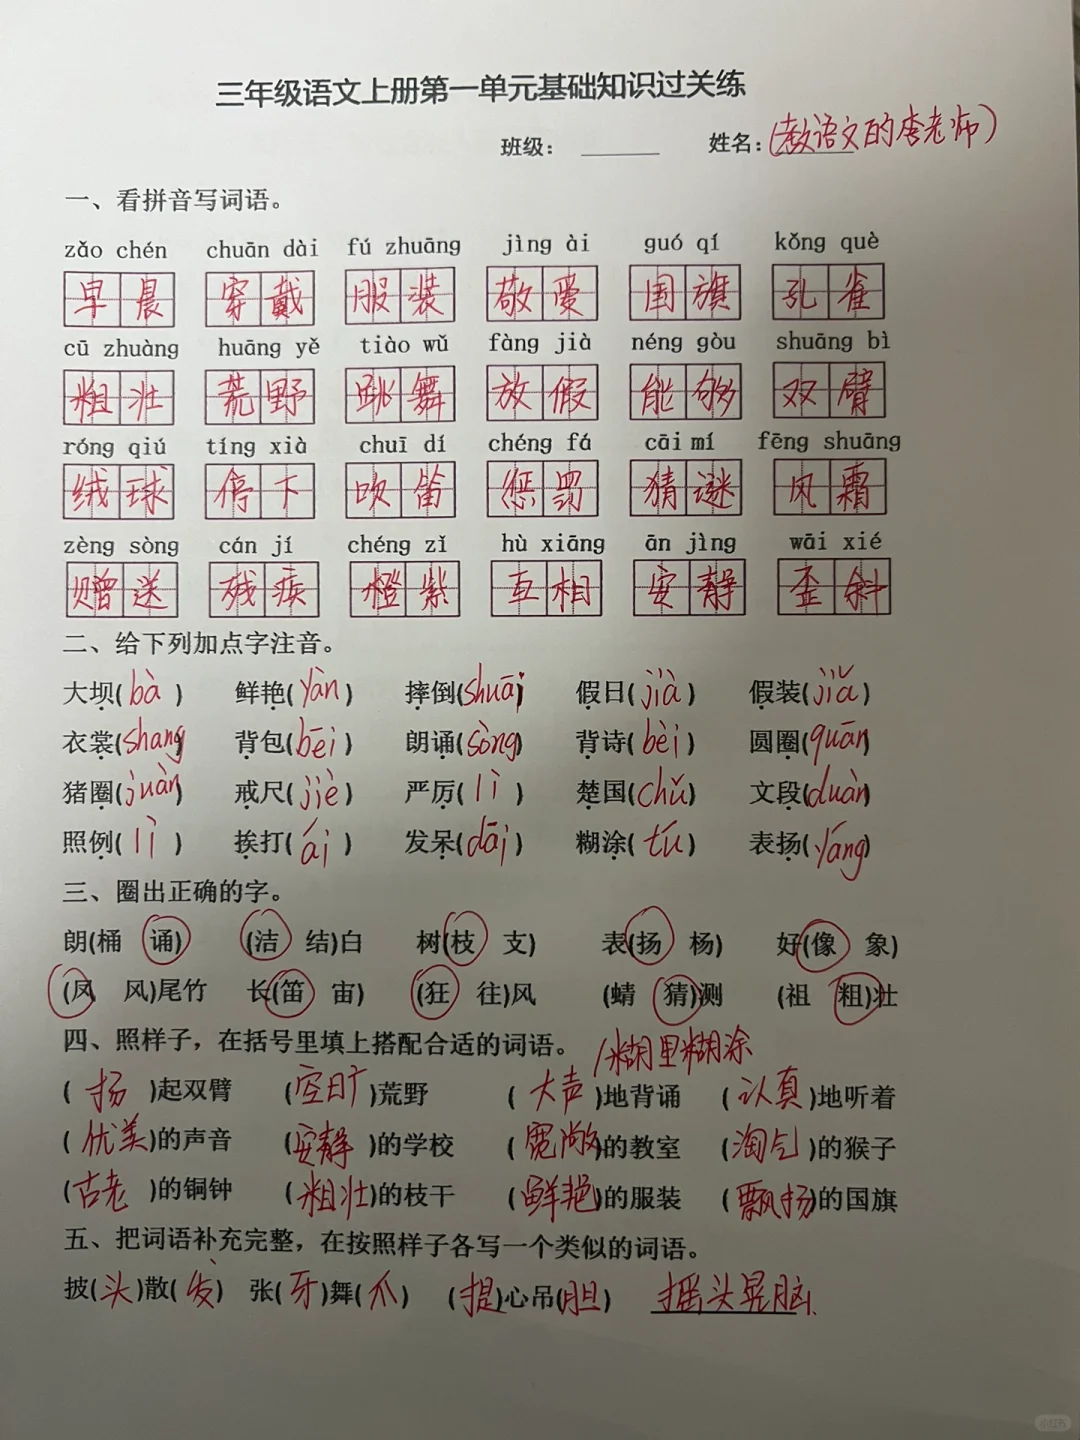 三年级语文上册第一单元基础知识过关练
班级： ______ 姓名：(教语文的李老师)
一、看拼音写词语。
zǎo chén chuān dài fú zhuāng jìng ài guó qí kǒng què
早晨 穿戴 服装 敬爱 国旗 孔雀
cū zhuàng huāng yě tiào wǔ fàng jià néng gòu shuāng bì
粗壮 荒野 跳舞 放假 能够 双臂
róng qiú tíng xià chuī dí chéng fá cāi mí fēng shuāng
绒球 停下 吹笛 惩罚 猜谜 风霜
zèng sòng cán jí chéng zǐ hù xiāng ān jìng wāi xié
赠送 残疾 橙紫 互相 安静 歪斜
二、给下列加点字注音。
大坝(bà) 鲜艳(yàn) 摔倒(shuāi) 假日(jià) 假装(jiǎ)
衣裳(shang) 背包(bēi) 朗诵(sòng) 背诗(bèi) 圆圈(quān)
猪圈(juàn) 戒尺(jiè) 严厉(lì) 楚国(chǔ) 文段(duàn)
照例(lì) 挨打(ái) 发呆(dāi) 糊涂(tú) 表扬(yáng)
三、圈出正确的字。
朗(桶 诵) (洁 结)白 树(枝 支) 表(扬 杨) 好(像 象)
(凤 风)尾竹 长(笛 宙) (狂 往)风 (蜻 猜)测 (祖 粗)壮
四、照样子，在括号里填上搭配合适的词语。 糊里糊涂
(扬)起双臂 (空旷)荒野 (大声)地背诵 (认真)地听着
(优美)的声音 (安静)的学校 (宽敞)的教室 (淘气)的猴子
(古老)的铜钟 (粗壮)的枝干 (鲜艳)的服装 (飘扬)的国旗
五、把词语补充完整，在按照样子各写一个类似的词语。
披(头)散(发) 张(牙)舞(爪) (提)心吊(胆) 摇头晃脑